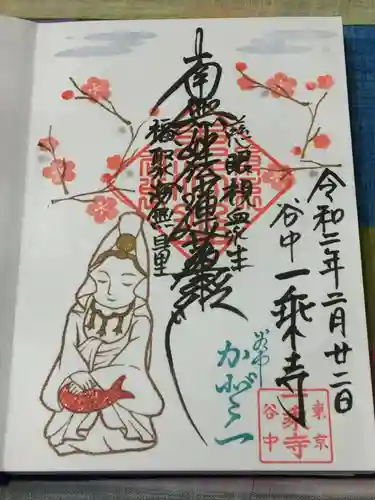 令和二年二月廿二日
谷中 一乗寺
慈眼視衆生
南無妙法蓮華経
福聚海無量
谷中
かざらん
東京
一乗寺
谷中